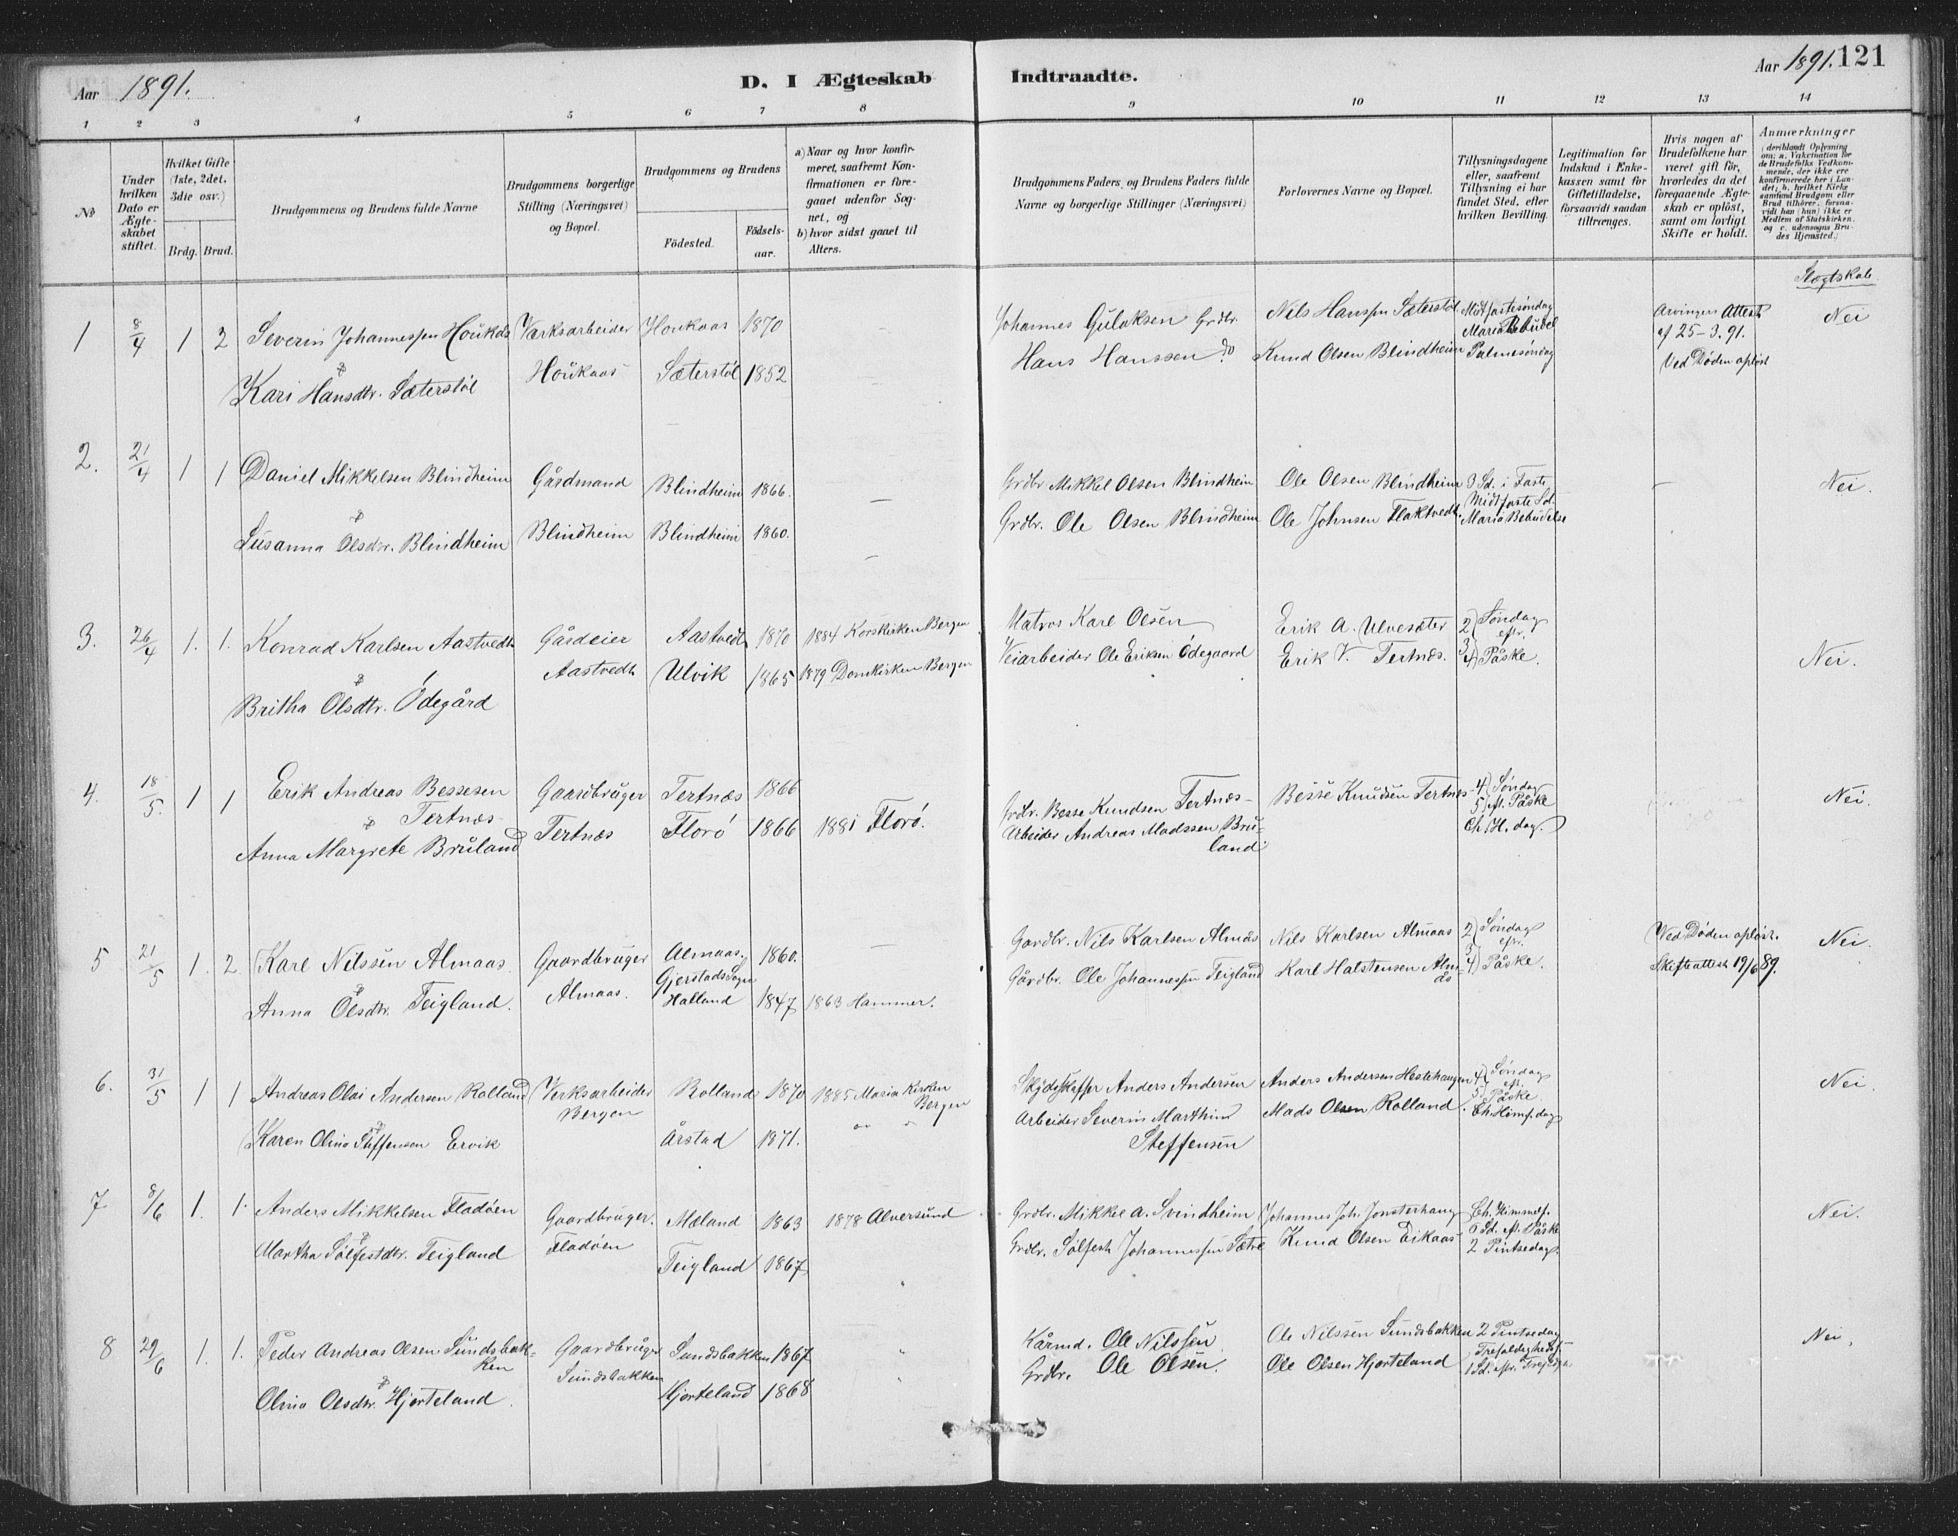 Aar 1891.
D. I Ægteskab
Indtraadte.
Aar 1891. 121
1 2 3 4 5 6 7 8 9 10 11 12 13 14
No
Under hvilken Dato er Ægteskabet stiftet.
Hvilket Gifte (1ste, 2det, 3die osv.)
Brdg. Brud.
Brudgommens og Brudens fulde Navne
Brudgommens borgerlige Stilling (Næringsvei) og Bopæl.
Brudgommens og Brudens
Födested.
Födsels-aar.
a) Naar og hvor konfirmeret, saafremt Konfirmationen er foregaaet udenfor Sognet, og
b) hvor sidst gaaet til Alters.
Brudgommens Faders, og Brudens Faders fulde Navne og borgerlige Stillinger (Næringsvei)
Forlovernes Navne og Bopæl.
Tillysningsdagene eller, saafremt Tillysning ei har fundet Sted, efter hvilken Bevilling.
Legitimation for Indskud i Enkekassen samt for Giftetilladelse, forsaavidt saadan tiltrænges.
Hvis nogen af Brudefolkene har været gift før, hvorledes da det foregaaende Ægteskab er oplöst, samt om lovligt Skifte er holdt.
Anmærkninger
(deriblandt Oplysning om: a. Vakcination for de Brudefolks Vedkommende, der ikke ere konfirmerede her i Landet; b. hvilket Kirkesamfund Brudgom eller Brud tilhörer, forsaavidt han (hun) ikke er Medlem af Statskirken, og c. udensogns Brudes Hjemsted.)
Slægtskab
1 8/4 1 2 Severin Johannessen Houkås Værksarbeider Houkaas 1870 —
Johannes Gulaksen Grdbr. Nils Hanssen Sæterstøl Midfastesøndag Arvingers Attest Nei
& Houkaas
Kari Hansdtr. Sæterstøl Sæterstøl 1852 —
Hans Hanssen do Knud Olsen Blindheim Maria Bebudel Palmesøndag af 25-3.91. Ved Døden opløst
2. 21/4 1 1 Daniel Mikkelsen Blindheim Gårdmand Blindheim 1866. —
Grdbr. Mikkel Olsen Blindheim Ole Olsen Blindheim 3 Sd. i Faste — Nei.
&
Susanna Olsdtr. Blindheim Blindheim Blindheim 1860. —
Grdbr. Ole Olsen Blindheim Ole Johnsen Flaktvedt. Midfaste Sd. Maria Bebudelse
3. 26/4 1. 1. Konrad Karlsen Aastvedt Gårdeier Aastvedt 1870 1884 Korskirken Bergen
Matros Karl Olsen Erik A. Ulvesæter 2) Søndag efr. Nei.
& Aastvedt Ulvik 1865 1879 Domkirken Bergen
Veiarbeider Ole Eriksen Ödegaard Erik V. Tertnæs. 3 4) Påske.
Britha Olsdtr. Ödegård
4. 18/5. 1 1 Erik Andreas Bessesen Gaardbruger Tertnæs 1866
Grdbr. Besse Knudsen Tertnæs- Besse Knudsen Tertnæs 4) Søndag Nei.
Tertnæs- 5) ef. Påske
&
Anna Margrete Bruland Tertnæs Florö 1866 1881 Florö.
Arbeider Andreas Madssen Bruland Ch. H. dag.
5 21/5 1. 2. Karl Nilssen Almaas. Gaardbruger Almaas, 1860. —
Gardbr. Nils Karlsen Almås Nils Karlsen Almaas 2) Søndag efr. Ved Døden opløst. Nei
& Gjerstads Sogn
Anna Olsdtr. Teigland. Almaas. Halland 1847 1863 Hammer.
Gårdbr. Ole Johannessen Teigland Karl Halstensen Almås 3 4) Påske. Skifteattest 19/6 89.
6. 31/5 1 1 Andreas Olai Andersen Rolland Verksarbeider Rolland 1870 1885 Maria Kirken Bergen
Skydsskaffer Anders Andersen Anders Andersen Hestehaugen 4) Søndag ef. Nei
& Bergen
Karen Olina Steffensen Ervik Årstad 1871.
Arbeider Severin Marthin Steffensen Mads Olsen Rolland. 5) Påske. Ch. Himf. dag
7 8/6 1. 1. Anders Mikkelsen Fladöen Gaardbruger. Mæland 1863 1878 Alversund
Grdbr. Mikkel A. Svindheim Johannes Joh. Jonsterhaug Ch. Himmelf. Nei.
&
Martha Sölfestdtr. Teigland Fladöen Teigland 1867 "
Grdbr. Sölfest Johannessen Sætre Knud Olsen Eikaas 6 Sd. ef. Påske 2 Pintsedag.
8 29/6 1. 1. Peder Andreas Olsen Sundsbakken Gaardbruger Sundsbakken 1867 "
Kårmd. Ole Nilssen. Ole Nilssen Sundsbakken 2 Pintsedag Nei.
& Sundsbakken
Olina Olsdtr. Hjorteland. Hjorteland 1868 "
Grdbr. Ole Olsen. Ole Olsen Hjorteland Trefoldighedsf. 1 Sd. efr. Tref.